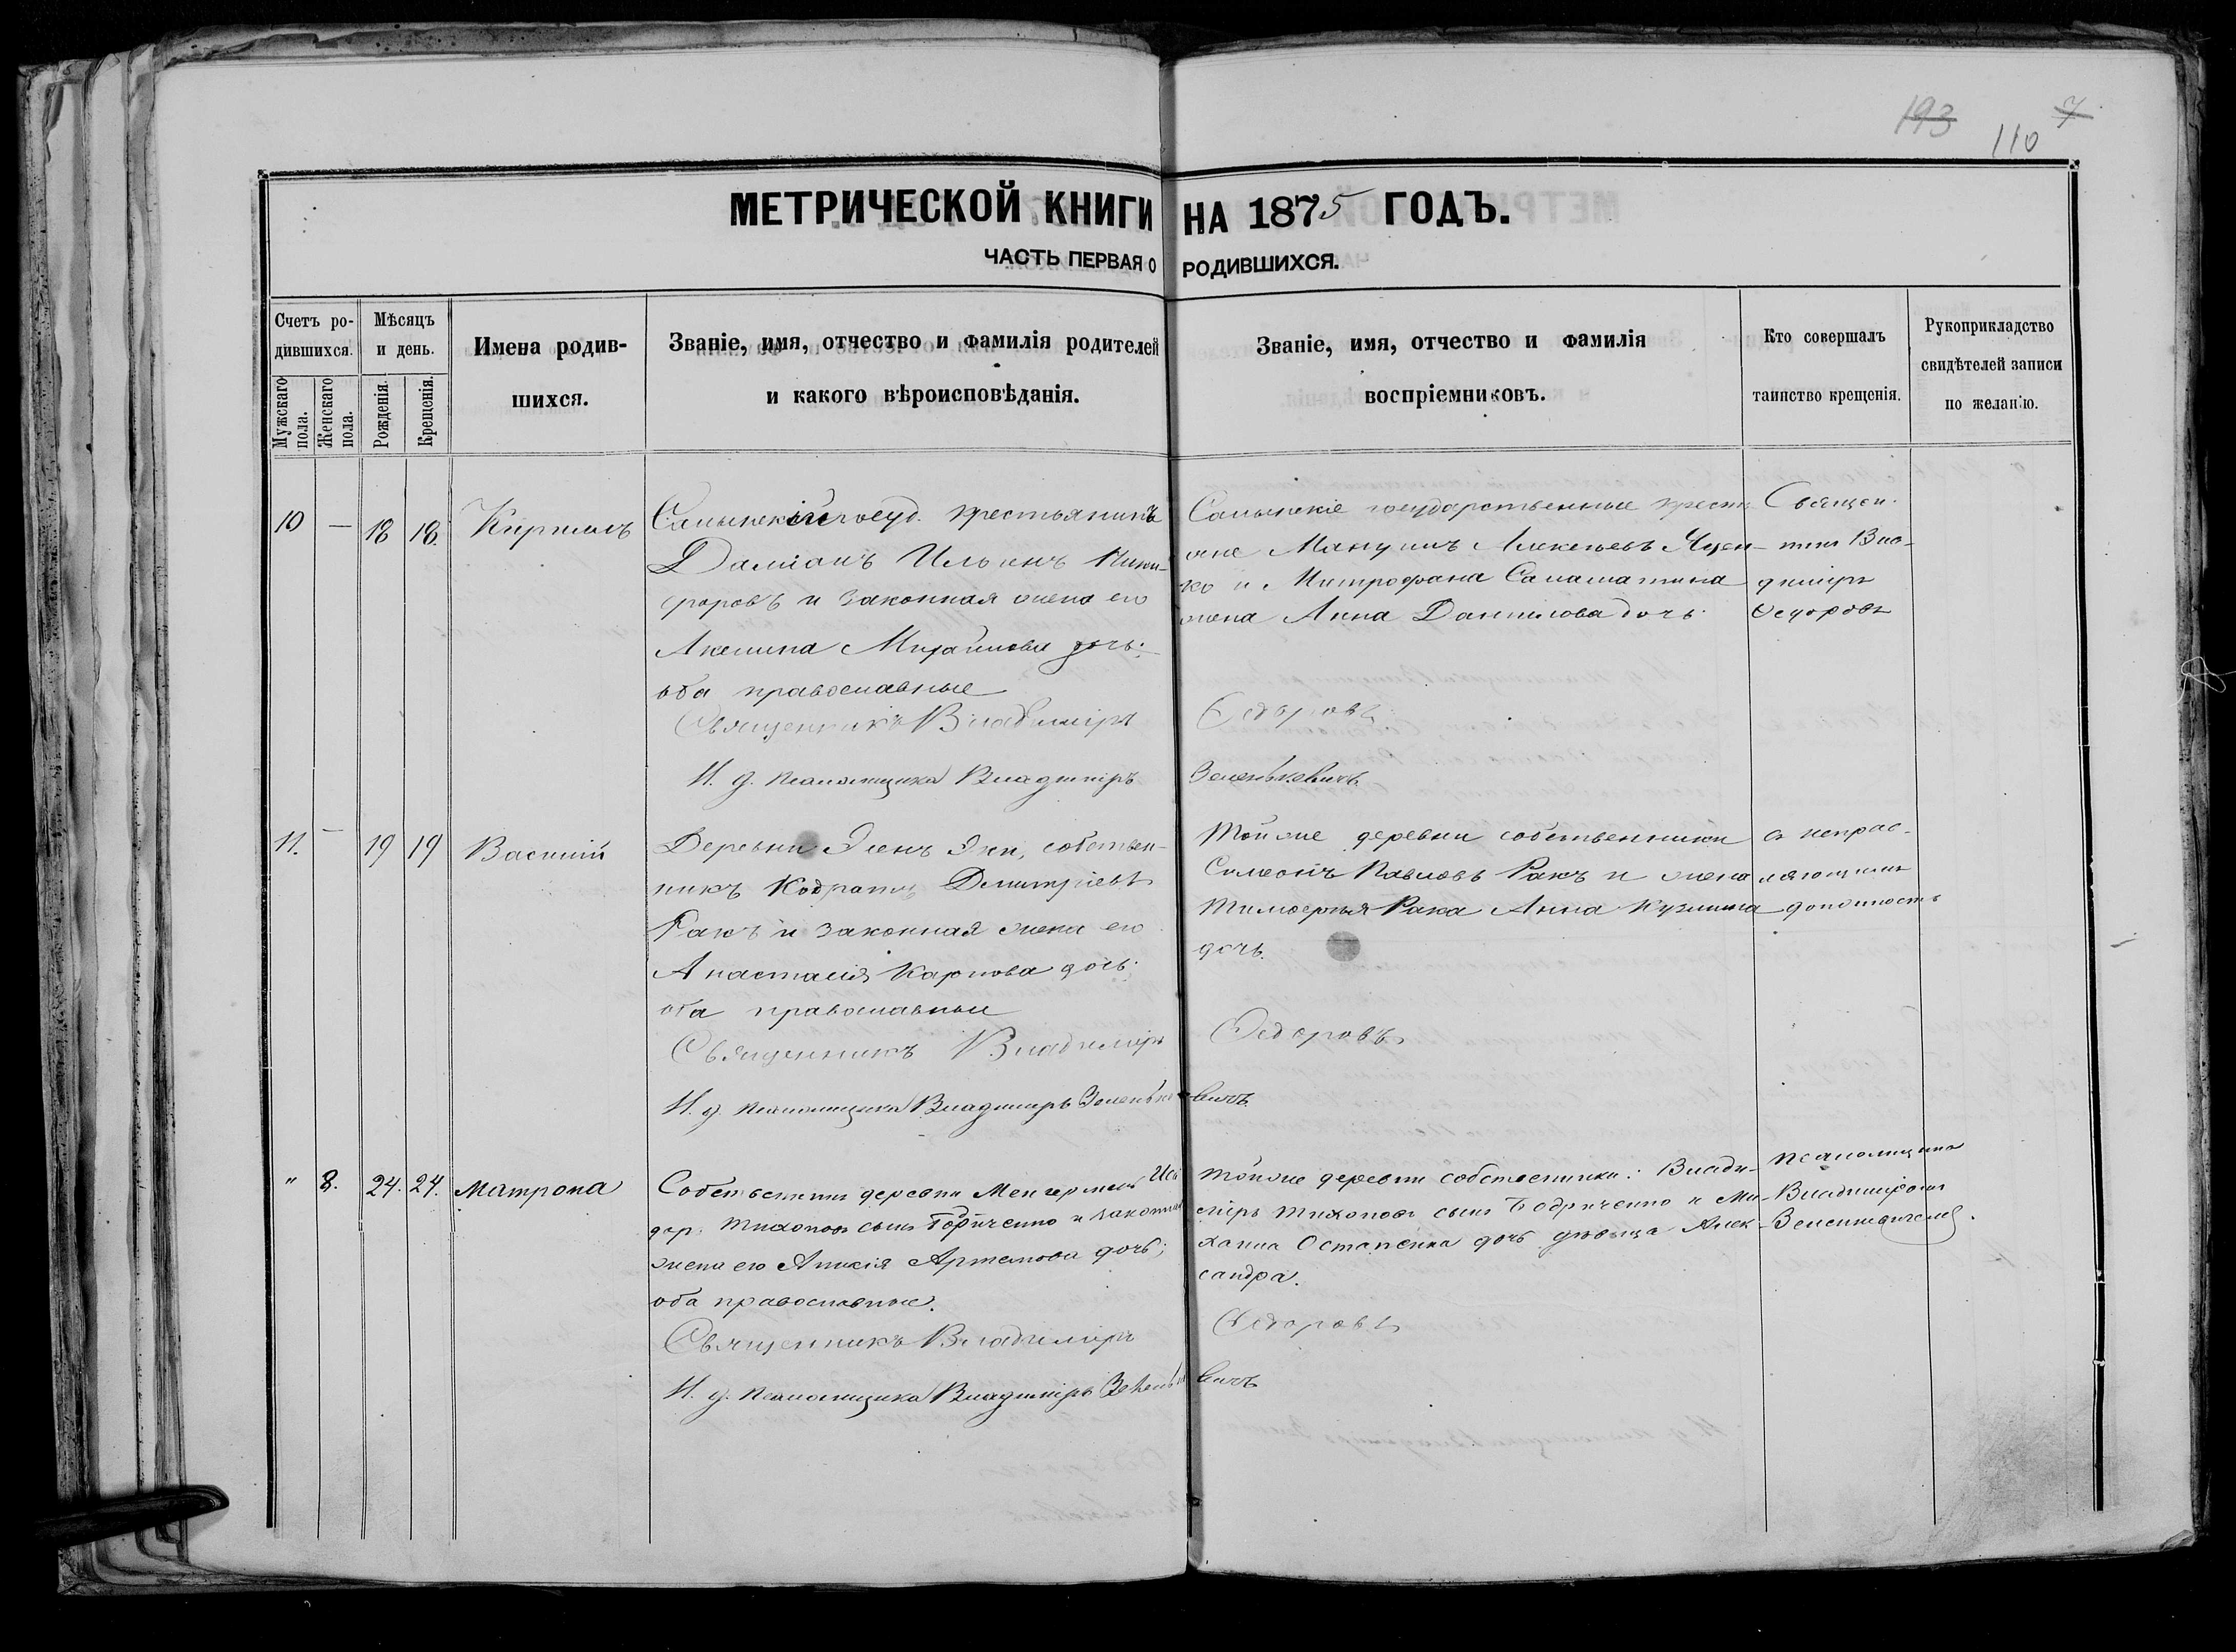 193
110
7
МЕТРИЧЕСКОЙ КНИГИ НА 1875 ГОДЪ.
ЧАСТЬ ПЕРВАЯ О РОДИВШИХСЯ.
Счетъ ро-
дившихся.
Мужскаго
пола.
Женскаго
пола.
Мѣсяцъ
и день.
Рожденія.
Крещенія.
Имена родив-
шихся.
Званіе, имя, отчество и фамилія родителей
и какого вѣроисповѣданія.
Званіе, имя, отчество и фамилія
воспріемниковъ.
Кто совершалъ
таинство крещенія.
Рукоприкладство
свидѣтелей записи
по желанію.
10 — 18 18. Кириллъ
госуд. крестьянинъ
Даміанъ Ильинъ Ники-
форовъ и законная жена его
Акилина Михайлова дочь;
оба православные
Священникъ Владиміръ
И. д. псаломщика Владиміръ
государственные крестья
ане Алексѣевъ Яцен-
ко и Митрофана
жена Анна Данилова дочь.
Ѳедоровъ
Зеленькевичъ
Священ-
никъ Вла-
диміръ
Ѳедоровъ
11. — 19 19 Василій
Деревни собствен-
никъ Кодратъ Димитріевъ
Ракъ и законная жена его
Анастасія Карпова дочь;
оба православные
Священникъ Владиміръ
И. д. псаломщика Владиміръ Зеленьке
Той же деревни собственники
Симеонъ Павловъ Ракъ и жена
Тимофея Рака Анна Кузмина
дочь.
Ѳедоровъ
вичъ
с псало-
" 8. 24. 24. Матрона
Собственникъ деревни Иси
дор. Тихоновъ сынъ и законная
жена его Артемова дочь;
оба православные.
Священникъ Владиміръ
И. д. псаломщика Владиміръ Зелень
Той же деревни собственники: Влади-
міръ Тихоновъ сынъ Бодриченко и Ми-
хаила Остапенка дочь дѣвица Алек-
сандра.
Ѳедоровъ
вичъ
Псаломщика
Владиміромъ